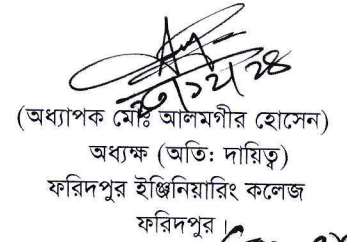 (অধ্যাপক মোঃ আলমগীর হোসেন)
অধ্যক্ষ (অতি: দায়িত্ব)
ফরিদপুর ইঞ্জিনিয়ারিং কলেজ
ফরিদপুর।